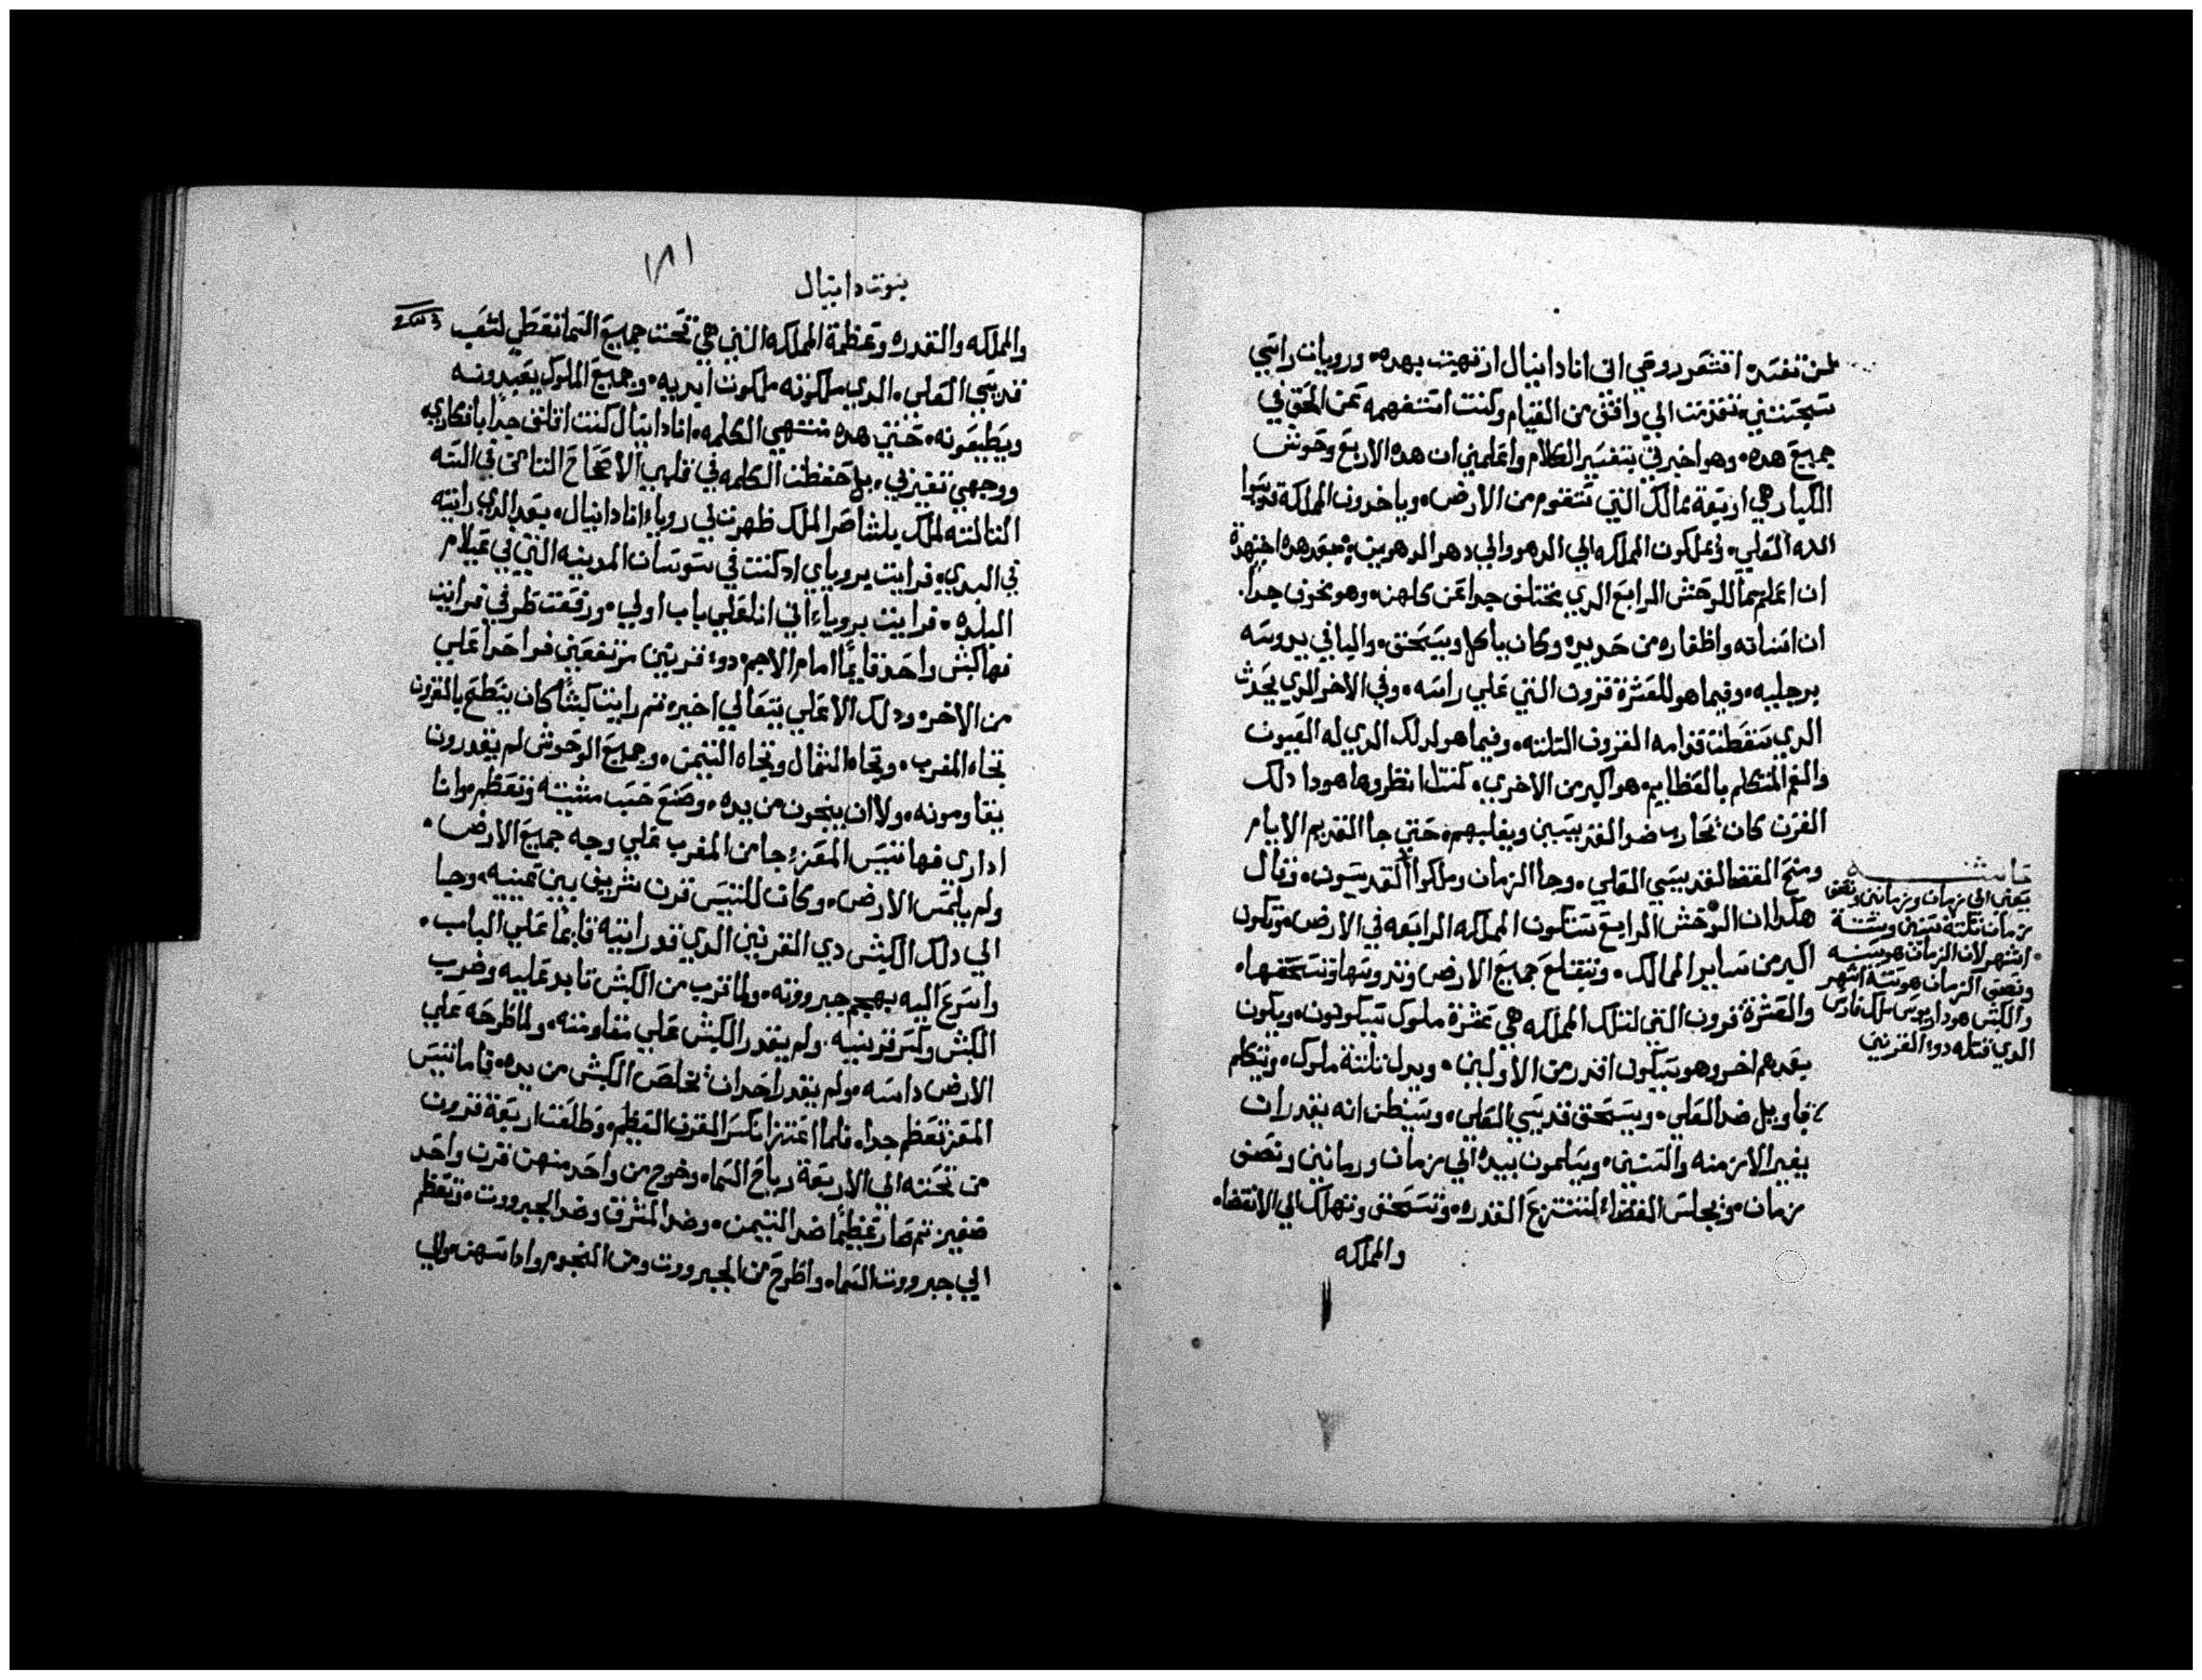 لمن نفسه اقشعر روحي اني انا دانيال ارتهبت بهده، ورويات راسي
سجستني، فقربت الي واقف من القيام وكنت استفهمه عن الحق في
جميع هده، وهو اخبرني بتفسير الكلام واعلمني ان هده الاربع وحوش
الكبار هي اربعة ممالك التي ستقوم من الارض، وياخدون المملكة قديسوا
الله العلي، ويملكون المملكه الي الدهر والي دهر الدهرين، فبعد هده اجتهدت
ان اعلم حما للوحش الرابع الدي يختلف جدا عن كلهن، وهو مخوف جدا.
ان اسنانه واظفاره من حديد، وكان ياكل ويسحق، والباقي يدوسه
برجليه، وفيما هو للعشرة قرون التي علي راسه، وفي الاخر الدي يحدث
الدي سقطت قدامه القرون التلته، وفيما هو لدلك الدي له العيون
والفم المتكلم بالعظايم، هو اكبر من الاخري، كنت انظر وها هودا دلك
القرن كان يحارب ضد القديسين ويغلبهم، حتي جا القديم الايام
ومنح القضا لقديسي العلي، وجا الزمان وملكوا القديسون، وقال
هكدا ان الوحش الرابع ستكون المملكه الرابعه في الارض، وتكون
اكبر من ساير الممالك، وتبتلع جميع الارض وتدوسها وتسحقها،
والعشرة قرون التي لتلك المملكه هي عشرة ملوك سيكونون، ويكون
بعدهم اخر وهو سيكون اقدر من الاولين، ويدل تلتة ملوك، ويتكلم
اقاويل ضد العلي، ويسحق قديسي العلي، وسيظن انه يقدر ان
يغير الازمنه والسنين، ويسلمون بيده الي زمان وزمانين ونصف
زمان، ويجلس القضاء لتنتزع القدره، وتسحق وتهلك الي الانقضا،
والمملكه
حاشيه
يعني الي زمان وزمانين ونصف
زمان تلته سنين وستة
اشهر لان الزمان هو سنه
ونصف الزمان هو ستة اشهر
والكبش هو داريوس ملك فارس
الدي قتله دوء القرنين
١٨١
نبوت دانيال
والمملكه والقدره وعظمة المملكه التي هي تحت جميع السما تعطي لشعب
قديسي العلي، الدي ملكوته ملكوت ابديه، وجميع الملوك يعبدونه
ويطيعونه، حتي هده منتهي الكلمه، انا دانيال كنت اقلق جدا بافكاري،
ووجهي تغير في، بل حفظت الكلمه في قلبي الاصحاح التامن في السنه
التالته لملك بلشاصر الملك ظهرت لي روياء انا دانيال، بعد الدي رايته
في البدي، فرايت بروياي اد كنت في سوسان المدينه التي في عيلام
البلده، فرايت بروياء اني انا علي باب اولي، ورفعت طرفي فرايت
فها كبش واحد قايما امام الاجم، دوء قرنين مرتفعين فواحدا علي
من الاخر، ودلك الاعلي يتعالي اخيره، تم رايت كبشا كان ينطح بالقرون
تجاه المغرب، وتجاه الشمال وتجاه التيمن، وجميع الوحوش لم يقدرون
يقاومونه، ولا ان ينجون من يده، وصنع حسب مشيته وتعظم، وانا
اداري فها تيس المعز، جا من المغرب علي وجه جميع الارض،
ولم يلمس الارض، وكان للتيس قرن شريف بين عينيه، وجا
الي دلك الكبش دي القرنين الدي قد رايته قايما علي الباب،
واسرع اليه بهجم جبروته، ولما قرب من الكبش تابد عليه وضرب
الكبش وكسر قرنيه، ولم يقدر الكبش علي مقاومته، ولما طرحه علي
الارض داسه، ولم يقدر احد ان يخلص الكبش من يده، فاما تيس
المعز تعظم جدا، فلما اعتز انكسر القرن العظيم، وطلعت اربعة قرون
من تحته الي الاربعة رياح السما، وخرج من واحد منهن قرن واحد
صغير تم صار عظيما ضد التيمن، وضد المشرق وضد الجبروت، وتعظم
الي جبروت السما، واطرح من الجبروت ومن النجوم واداسهن، والي